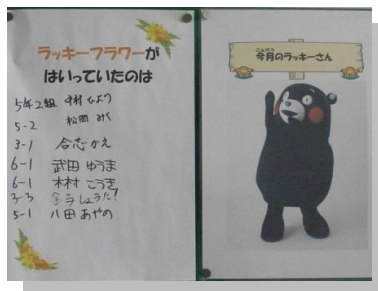 ラッキーフラワーが
はいっていたのは
5年2組 中村 なより
5-2 松岡 みく
3-1 合志 かえ
6-1 武田 ゆうま
6-1 木村 こうき
3-3 しょうた!
5-1 八田 あやの
こんげつ
今月のラッキーさん